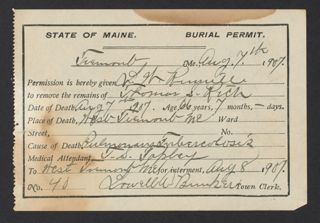 STATE OF MAINE. BURIAL PERMIT.
Tremont, Me. Aug 7th 1907.
Permission is hereby given
to remove the remains of Thomas S. Rich
Date of Death, Aug 7th 1907. Age 66 years, 7 months – days.
Place of Death, West Tremont Me Ward
Street,
Cause of Death, Pulmonary Tuberculosis
Medical Attendant,
To West Tremont Me for interment, Aug 8 1907.
No. 40 Town Clerk.